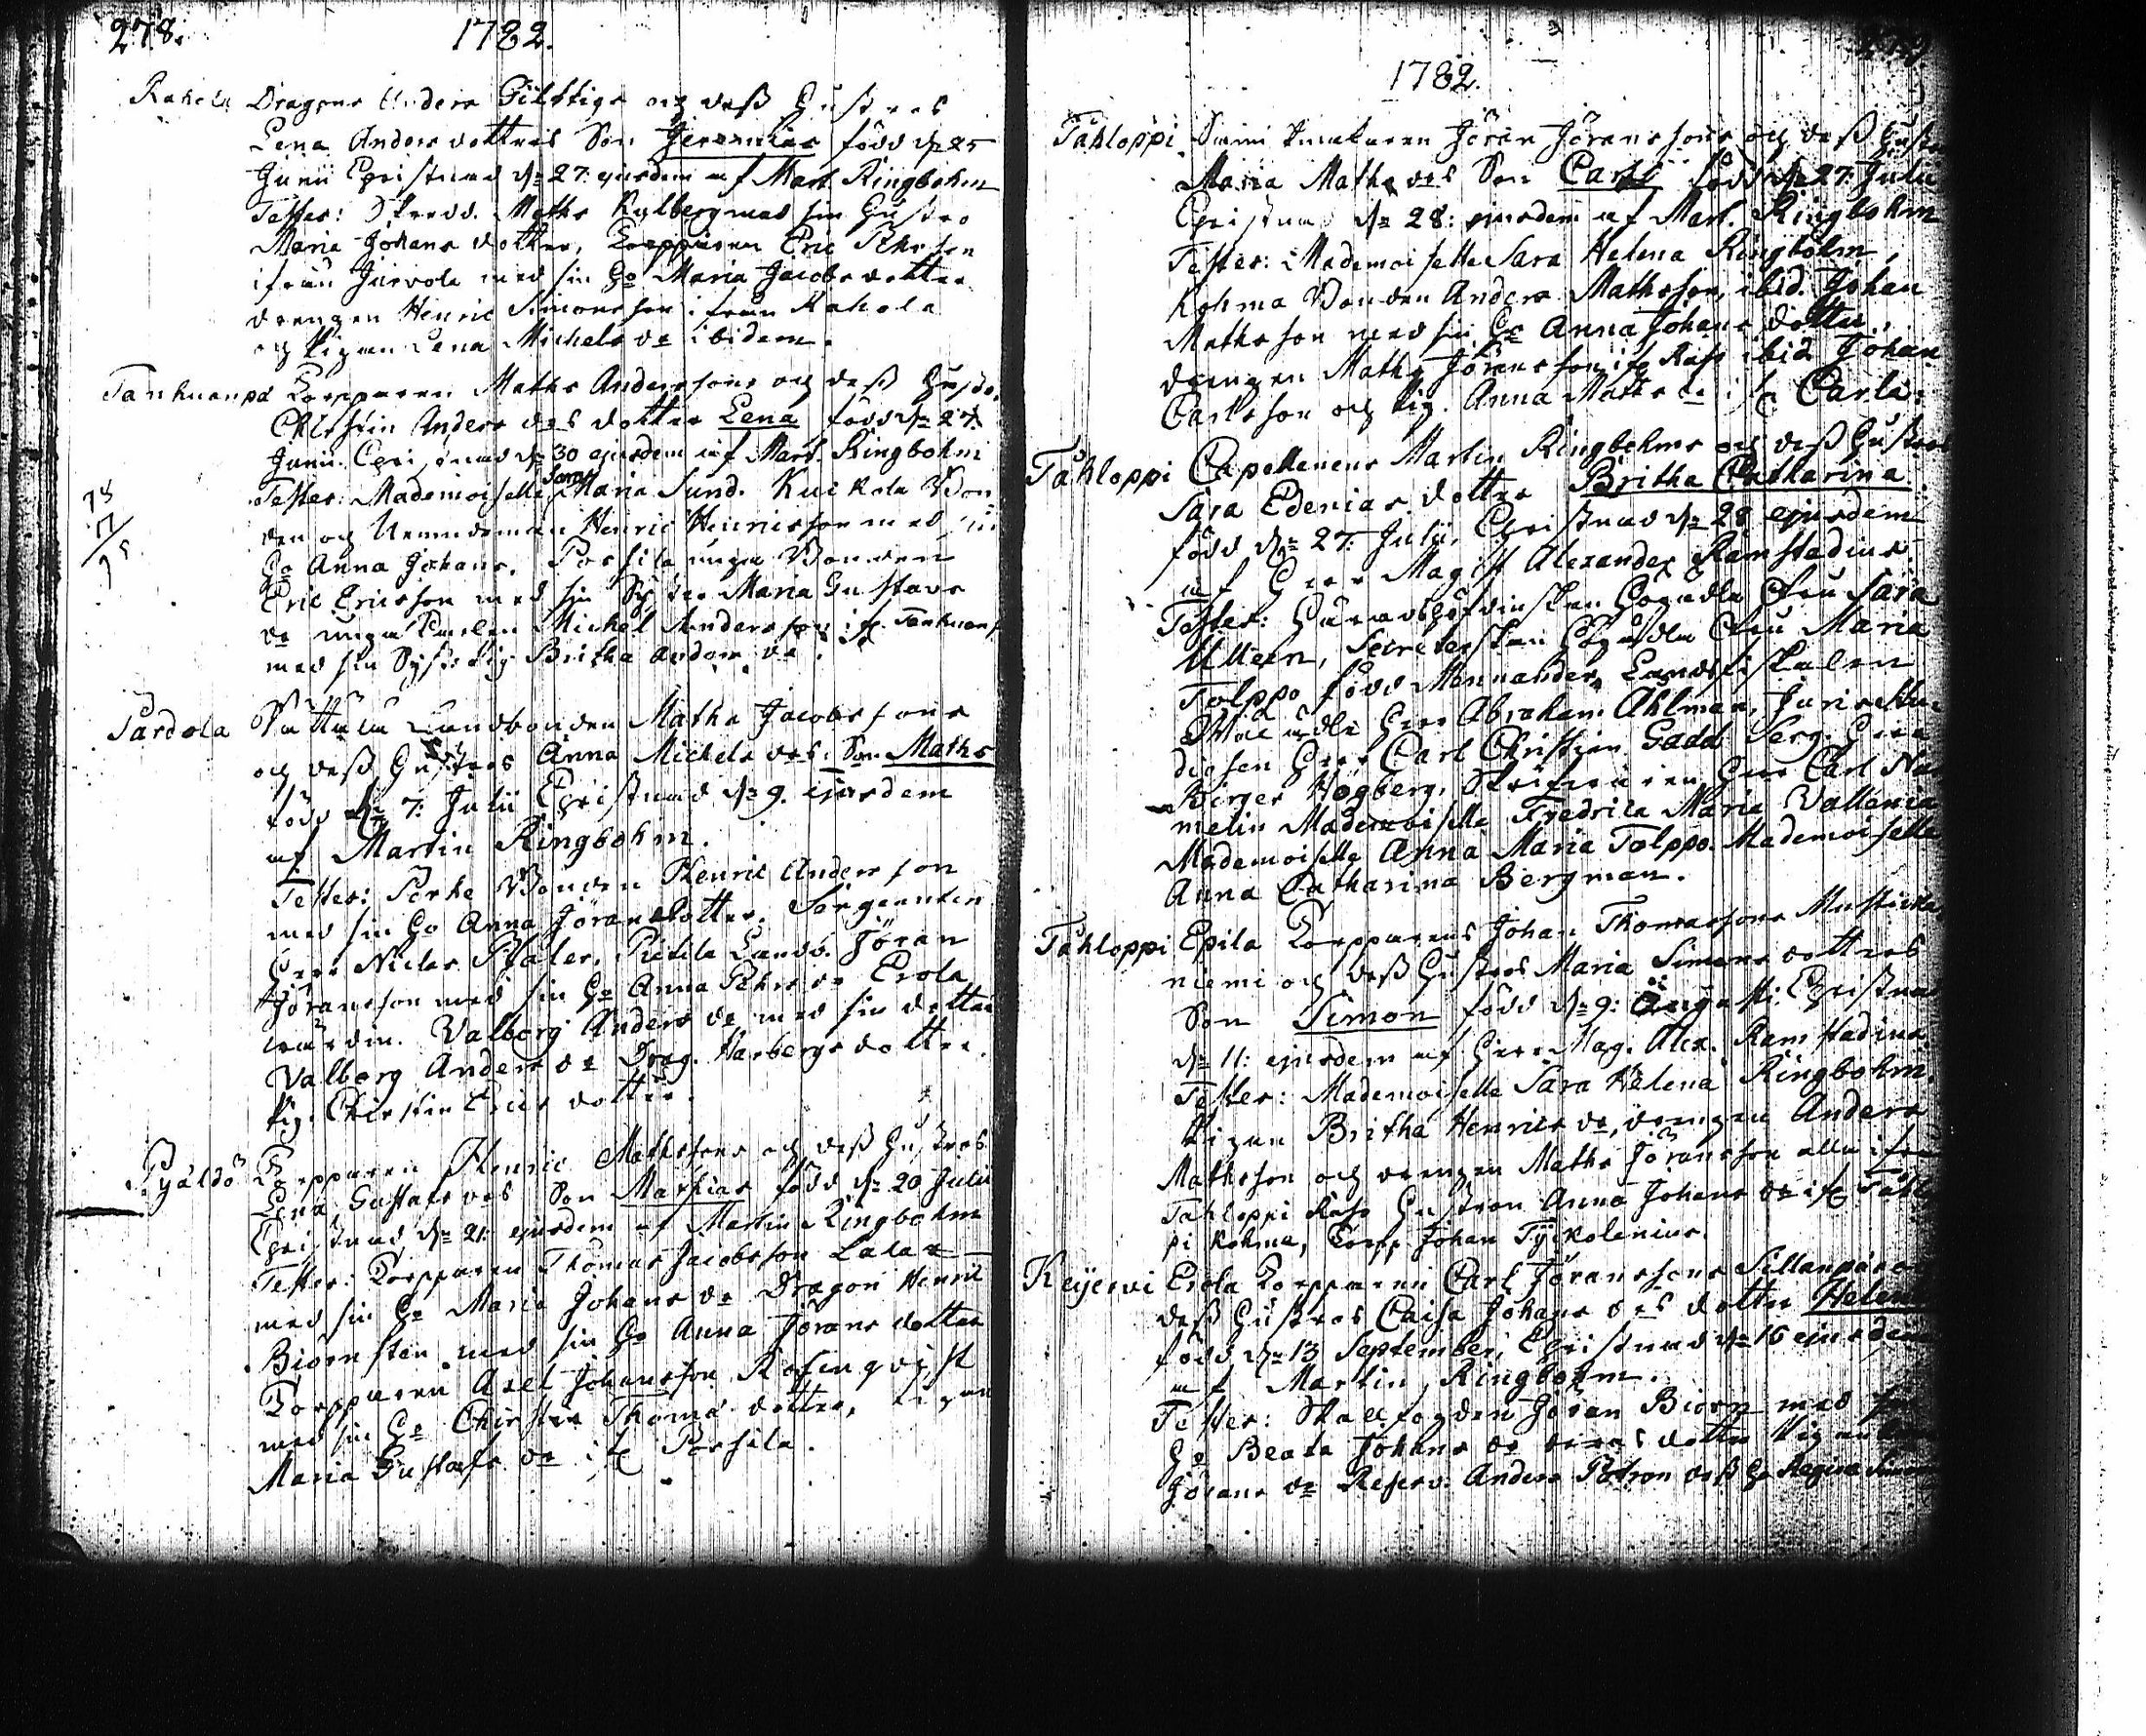 278.
1782.
Rahola Dragons Anders Filttigs och dess Hustros
Lena Andersdottres Son Jeremias född d: 25
Junii Christnad d: 27: ejusdem af Mart. Ringbohm
Testes: Skredd. Maths Kulberg med sin Hustro
Maria Johans dotter, Torpparen Eric Pehrsson
ifrån Jurvola med sin Ho Maria Jacobs dotter
drengen Henric Simonsson ifrån Rahola
och Pigan Lena Michels dr ibidem.
Tanhuanpä Torpparen Maths Anderssons och dess Hustro
Christin Anders drs dotter Lena född d: 27:
Junii Christnad d: 30 ejusdem af Mart. Ringbohm
Testes: Mademoiselle Sara Maria Sund. Kuikola Bon
den och Nemndeman Henric Henricsson med sin
Ho Anna Johans. Porsila unga Bonden
Eric Ericsson med sin Syster Maria Gustavs
dr unga Karlen Michel Andersson ifr Tanhuanp
med sin Syster Pig. Britha Anders dr.
78
17
Pardola Puttala Landbonden Maths Jacobssons
och dess Hustros Anna Michels drs Son Maths
född d: 7: Julii Christnad d: 9. ejusdem
af Martin Ringbohm.
Testes: Perke Bonden Henric Andersson
med sin Ho Anna Jöransdotter. Sergeanten
Herr Niclas Stäler. Pietila Landb. Jöran
Jöransson med sin Ho Anna Pehrs dr Erola
wärdin. Valborg Anders dr med sin dotter
Valborg Anders dr Drag. Harbergs dotter
Pig. Christin Erics dotter.
Pyäldö Torpparen Henric Mathssons och dess Hustros
Lena Gustafs drs Son Mathias född d: 20 Julii
Christnad d: 21: ejusdem af Martin Ringbohm
Testes: Torpparen Thomas Jacobsson Lala
med sin Ho Maria Johans dr Dragon Henric
Biörnsten med sin Ho Anna Jörans dotter
Torpparen Axel Johansson Rosenqvist
med sin Ho Christin Thoma dotter, Pigan
Maria Gustafs dr ifr Porsila.
1782.
Tahloppi Jören Jöranssons och dess Hustro
Maria Maths drs Son Carl född d: 27: Julii
Christnad d: 28: ejusdem af Mart. Ringbohm
Testes: Mademoiselle Sara Helena Ringbohm
Kohma Bonden Anders Mathsson, ibid. Johan
Mathsson med sin Ho Anna Johans dotter.
drengen Maths Jöransson ifr Rass ibid Johan
Carlsson och Pig. Anna Maths dr ifr Carls.
Tahloppi Capellanens Martin Ringbohms och dess Hustros
Sara Edenias dotter Britha Catharina
född d: 27: Julii, Christnad d: 28 ejusdem
af Herr Magist Alexander Ramstadius
Testes: Häradshöfdinskan Högädla Fru Sara
Ulleen, Secreterskan Högädla Fru Maria
Tolppo född Mennander, Landsfiskalen
Wälädle Herr Abraham Ahlman, Juris Stu-
diosen Herr Carl Christian Gadd Serg. Herr
Birger Högberg, Skrifvaren Herr Carl Nu
melin Mademoiselle Fredrica Maria Vallenia
Mademoiselle Anna Maria Tolppo. Mademoiselle
Anna Catharina Bergman.
Tahloppi Epila Torpparens Johan Thomassons Mustica
niemi och dess Hustros Maria Simons dottres
Son Simon född d: 9: Augusti Christnad
d: 11: ejusdem af Herr Mag. Alex. Ramstadius
Testes: Mademoiselle Sara Helena Ringbohm.
Pigan Britha Henrics dr, drengen Anders
Mathsson och drengen Maths Jöransson alla ifrån
Tahloppi Rass Hustron Anna Johans dr ifr Tahlo
pi Kohma, Torpp. Johan Tyrkolenius.
Keijervi Erola Torpparen Carl Jöranssons Sillanpää o
dess Hustros Caisa Johans drs dotter Helena
född d: 13 September, Christnad d: 16 ejusdem
af Martin Ringbohm.
Testes: Stallfogden Jöran Biörn med sin
Ho Beata Johans dr deras dotter Pigan
Jörans dr Reserv. Anders Patron dess Ho Regina Simons